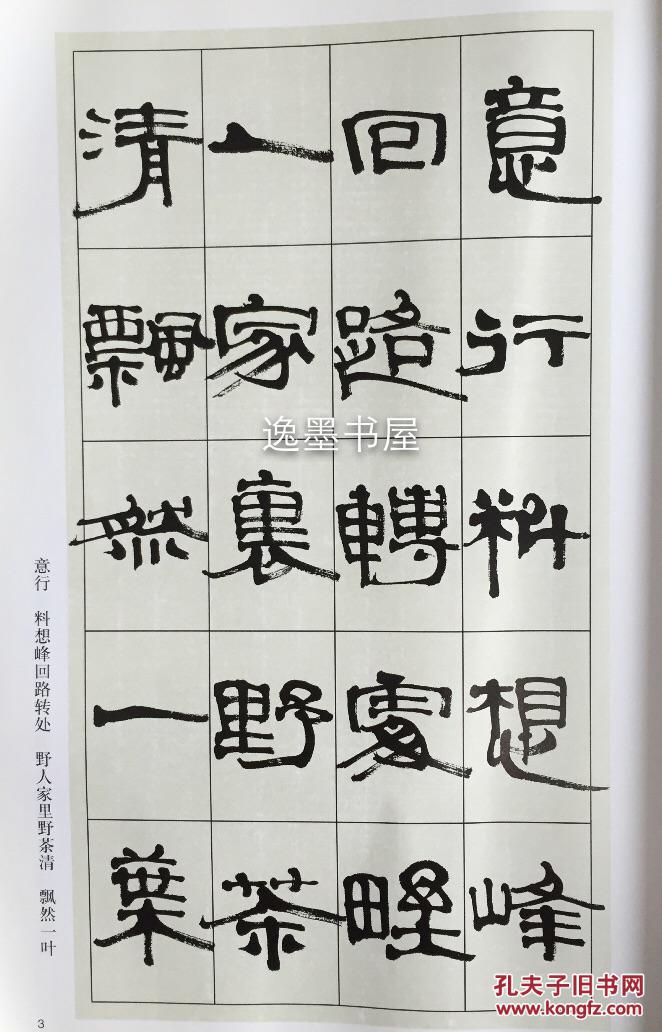 意行料想峰
回路轉處野
人家裏野茶
清飄然一葉
意行 料想峰回路转处 野人家里野茶清 飘然一叶
3
逸墨书屋
孔夫子旧书网
www.kongfz.com